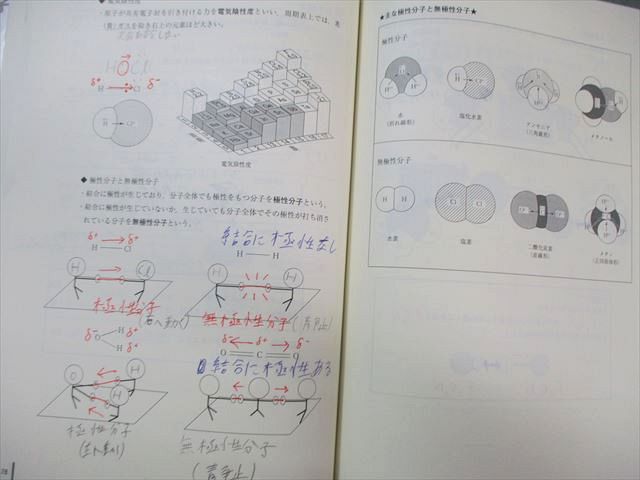 ◆電気陰性度
・原子が共有電子対を引き付ける力を電気陰性度といい、周期表上では、希
(貴)ガスを除き右上の元素ほど大きい。
H O Cl
δ+ δ-
H Cl
H Cl-
電気陰性度
◆極性分子と無極性分子
・結合に極性が生じており、分子全体でも極性をもつ分子を極性分子という。
・結合に極性が生じていないか、生じていても分子全体でその極性が打ち消さ
れている分子を無極性分子という。
δ+ δ-
H Cl
結合に極性なし
H H
H Cl
H H
極性分子
(右へ動く)
無極性分子 (静止)
δ- O H δ+
H δ+
δ- δ+ δ-
O C O
結合に極性ある
O H
H
極性分子
無極性分子
(静止)
28
★主な極性分子と無極性分子★
極性分子
水
(折れ線形)
塩化水素
アンモニア
(三角錐形)
メタノール
無極性分子
H H
水素
Cl Cl
塩素
二酸化炭素
(直線形)
メタン
(正四面体形)